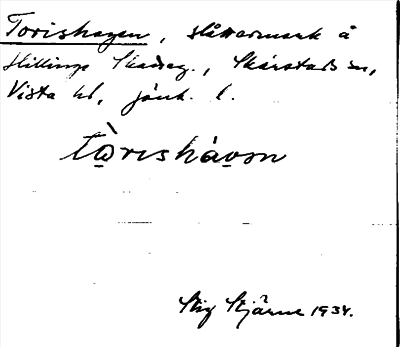 Torishagen, slåttermark å
Hillinge Skatteg., Skärstads sn,
Vista hd, jönk. l.
tὼrishávən
Stig Stjärne 1934.